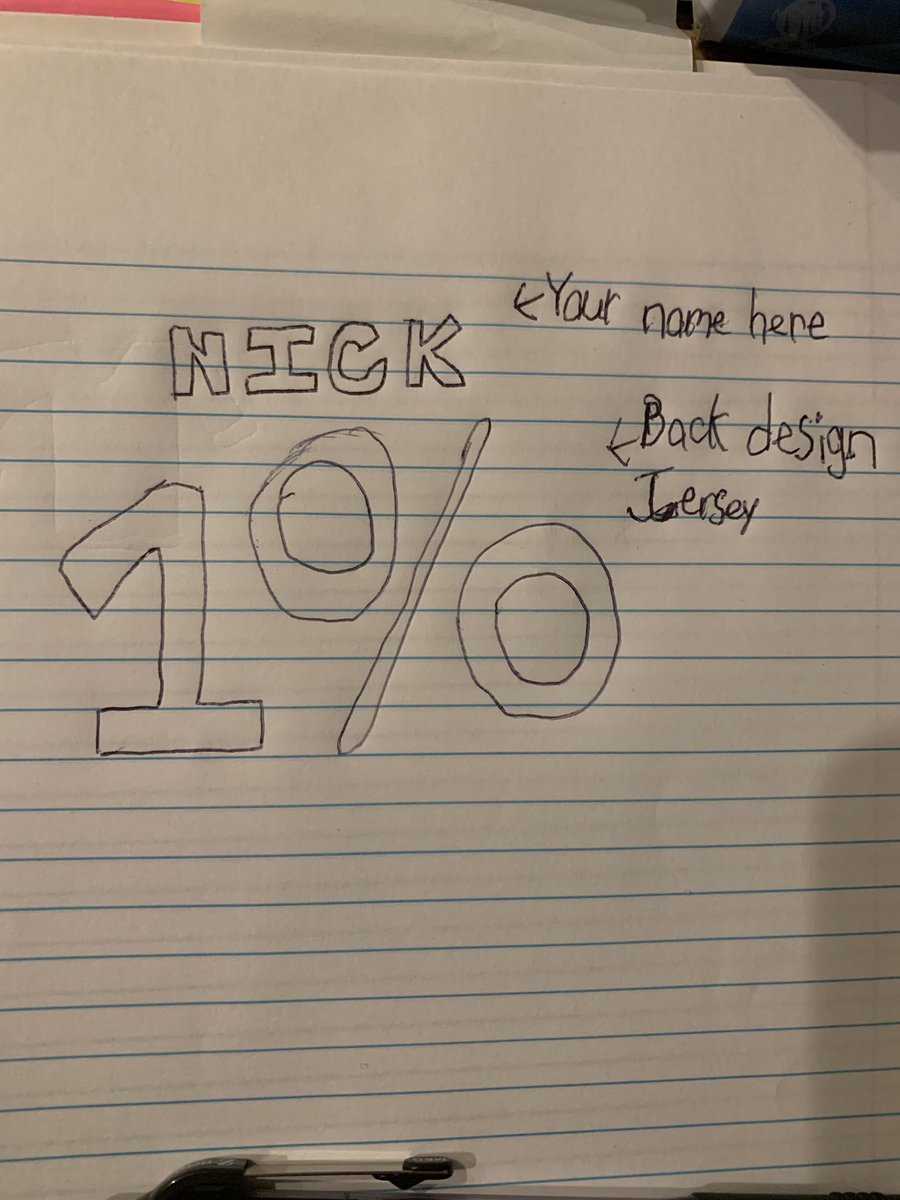 NICK
←Your name here
1%
←Back design
Jersey